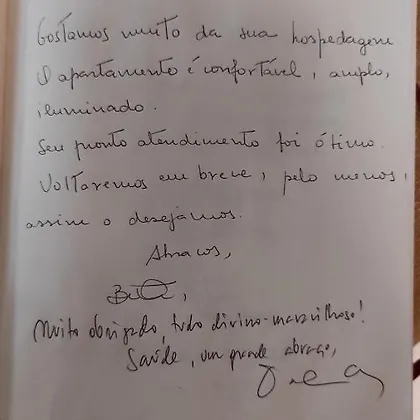 Gostamos muito da sua hospedagem
O apartamento é confortável, amplo,
iluminado.
Seu pronto atendimento foi ótimo.
Voltaremos em breve, pelo menos,
assim o desejamos.
Abraços,
Muito obrigado, tudo divino-maravilhoso!
Saúde, um grande abraço,